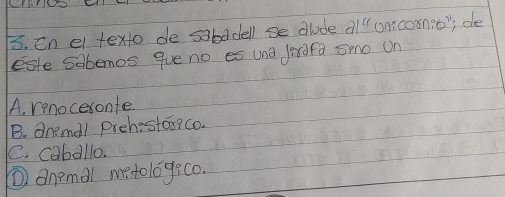 3. En el texto de sabadell se alude al "unicornio"; de
este sabemos que no es una jirafa sino un
A. rinoceronte.
B. animal prehistórico.
C. caballo.
D. animal mitológico.